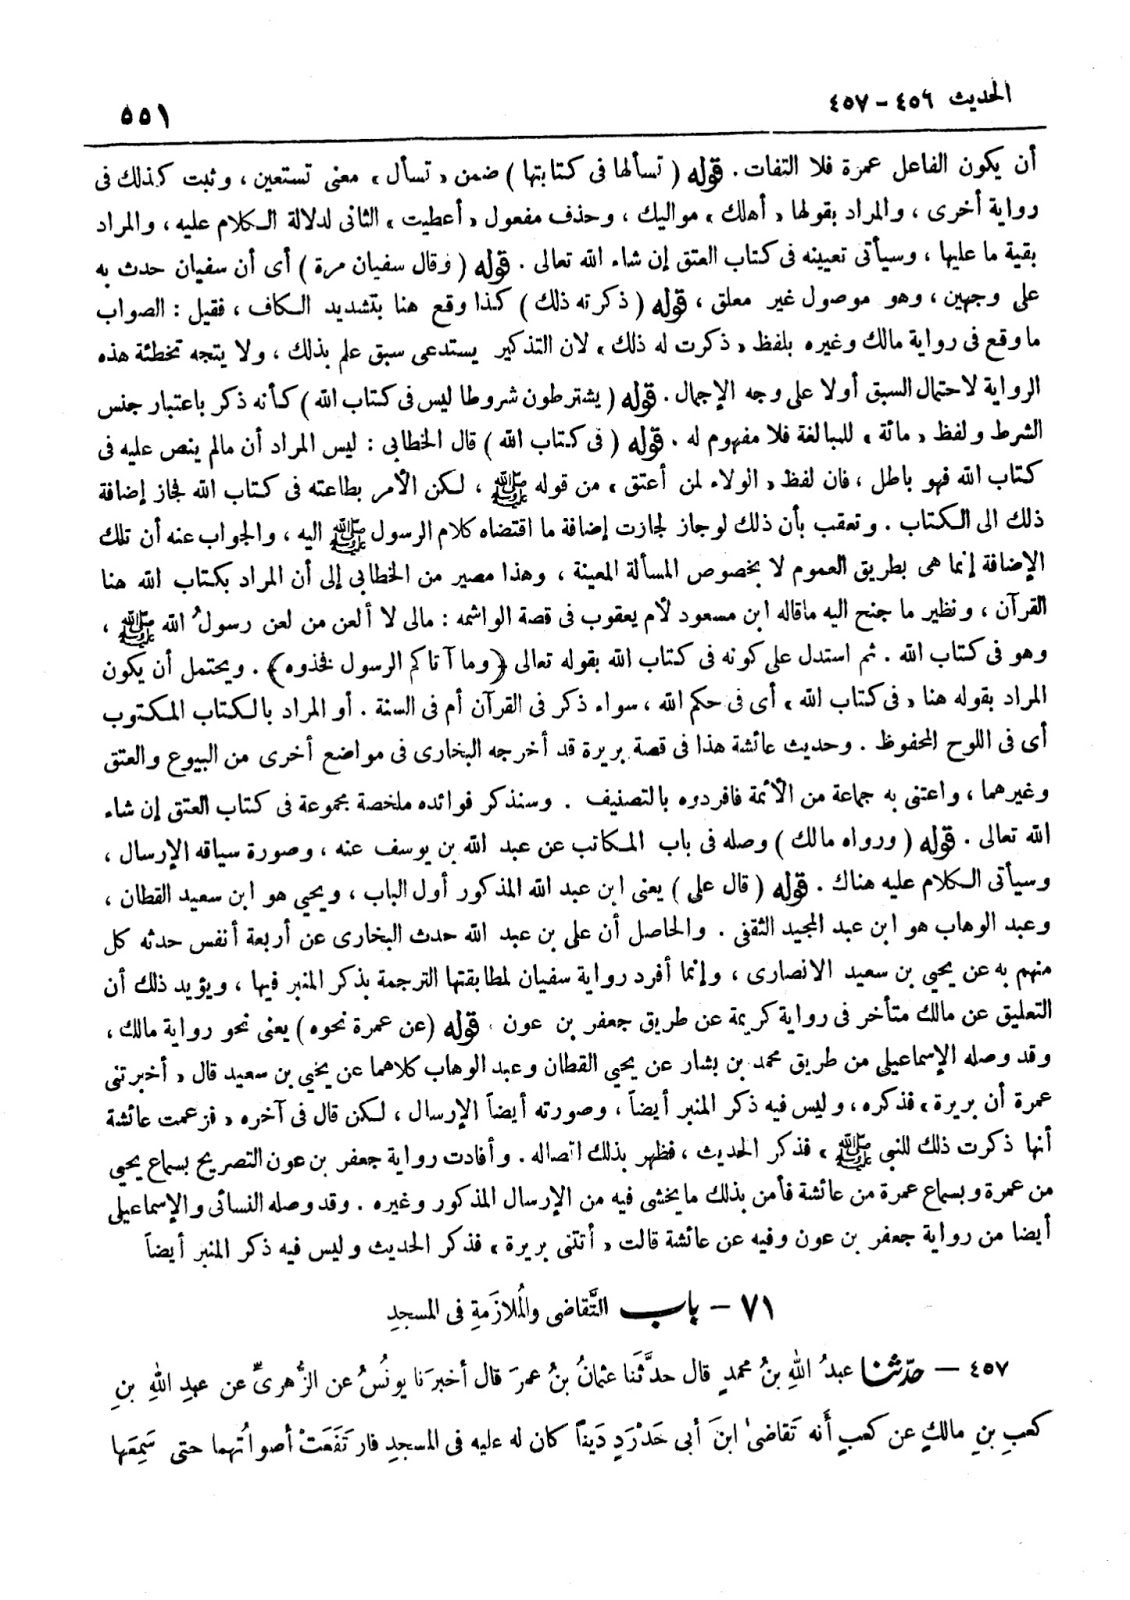 الحديث ٤٥٦ - ٤٥٧
٥٥١
أن يكون الفاعل عمرة فلا التفات . قوله ( تسألها فى كتابتها ) ضمن « تسأل » معنى تستعين ، وثبت كذلك فى
رواية أخرى ، والمراد بقولها « أهلك » مواليك ، وحذف مفعول « أعطيت » الثانى لدلالة الكلام عليه ، والمراد
بقية ما عليها ، وسيأتى تعيينه فى كتاب العتق إن شاء الله تعالى . قوله ( وقال سفيان مرة ) أى أن سفيان حدث به
على وجهين ، وهو موصول غير معلق ، قوله ( ذكرته ذلك ) كذا وقع هنا بتشديد الكاف ، فقيل : الصواب
ما وقع فى رواية مالك وغيره بلفظ « ذكرت له ذلك » لان التذكير يستدعى سبق علم بذلك ، ولا يتجه تخطئة هذه
الرواية لاحتمال السبق أولا على وجه الإجمال . قوله ( يشترطون شروطا ليس فى كتاب الله ) كأنه ذكر باعتبار جنس
الشرط ولفظ « مائة » للمبالغة فلا مفهوم له . قوله ( فى كتاب الله ) قال الخطابى : ليس المراد أن مالم ينص عليه فى
كتاب الله فهو باطل ، فان لفظ « الولاء لمن أعتق » من قوله ﷺ ، لكن الأمر بطاعته فى كتاب الله فجاز إضافة
ذلك الى الكتاب . وتعقب بأن ذلك لو جاز لجازت إضافة ما اقتضاه كلام الرسول ﷺ اليه ، والجواب عنه أن تلك
الإضافة إنما هى بطريق العموم لا بخصوص المسألة المعينة ، وهذا مصير من الخطابى إلى أن المراد بكتاب الله هنا
القرآن ، ونظير ما جنح اليه ماقاله ابن مسعود لأم يعقوب فى قصة الواشمه : مالى لا ألعن من لعن رسولُ الله ﷺ ،
وهو فى كتاب الله . ثم استدل على كونه فى كتاب الله بقوله تعالى ﴿ وما آتاكم الرسول فخذوه ﴾ . ويحتمل أن يكون
المراد بقوله هنا « فى كتاب الله » أى فى حكم الله ، سواء ذكر فى القرآن أم فى السنة . أو المراد بالكتاب المكتوب
أى فى اللوح المحفوظ . وحديث عائشة هذا فى قصة بريرة قد أخرجه البخارى فى مواضع أخرى من البيوع والعتق
وغيرهما ، واعتنى به جماعة من الأئمة فافردوه بالتصنيف . وسنذكر فوائده ملخصة مجموعة فى كتاب العتق إن شاء
الله تعالى . قوله ( ورواه مالك ) وصله فى باب المكاتب عن عبد الله بن يوسف عنه ، وصورة سياقه الإرسال ،
وسيأتى الكلام عليه هناك . قوله ( قال على ) يعنى ابن عبد الله المذكور أول الباب ، ويحيى هو ابن سعيد القطان ،
وعبد الوهاب هو ابن عبد المجيد الثقفى . والحاصل أن على بن عبد الله حدث البخارى عن أربعة أنفس حدثه كل
منهم به عن يحيى بن سعيد الانصارى ، وإنما أفرد رواية سفيان لمطابقتها الترجمة بذكر المنبر فيها ، ويؤيد ذلك أن
التعليق عن مالك متأخر فى رواية كريمة عن طريق جعفر بن عون . قوله ( عن عمرة نحوه ) يعنى نحو رواية مالك ،
وقد وصله الإسماعيلى من طريق محمد بن بشار عن يحيى القطان وعبد الوهاب كلاهما عن يحيى بن سعيد قال « أخبرتنى
عمرة أن بريرة » فذكره ، وليس فيه ذكر المنبر أيضاً ، وصورته أيضاً الإرسال ، لكن قال فى آخره « فزعمت عائشة
أنها ذكرت ذلك للنبى ﷺ » فذكر الحديث ، فظهر بذلك اتصاله . وأفادت رواية جعفر بن عون التصريح بسماع يحيى
من عمرة وبسماع عمرة من عائشة فأمن بذلك ما يخشى فيه من الإرسال المذكور وغيره . وقد وصله النسائى والإسماعيلى
أيضا من رواية جعفر بن عون وفيه عن عائشة قالت « أتتنى بريرة » فذكر الحديث وليس فيه ذكر المنبر أيضاً
٧١ - باب التَّقاضى والمُلازَمةِ فى المسجدِ
٤٥٧ - حدّثنا عبدُ اللهِ بنُ محمدٍ قال حدَّثَنا عثمانُ بنُ عمرَ قال أخبرَنا يونُسُ عن الزُّهرىِّ عن عبدِ اللهِ بنِ
كعبِ بنِ مالكٍ عن كعبٍ أَنه تَقاضىٰ ابنَ أبى حَدْرَدٍ دَيناً كان له عليه فى المسجدِ فارتَفَعَتْ أصواتُهما حتى سَمِعَها